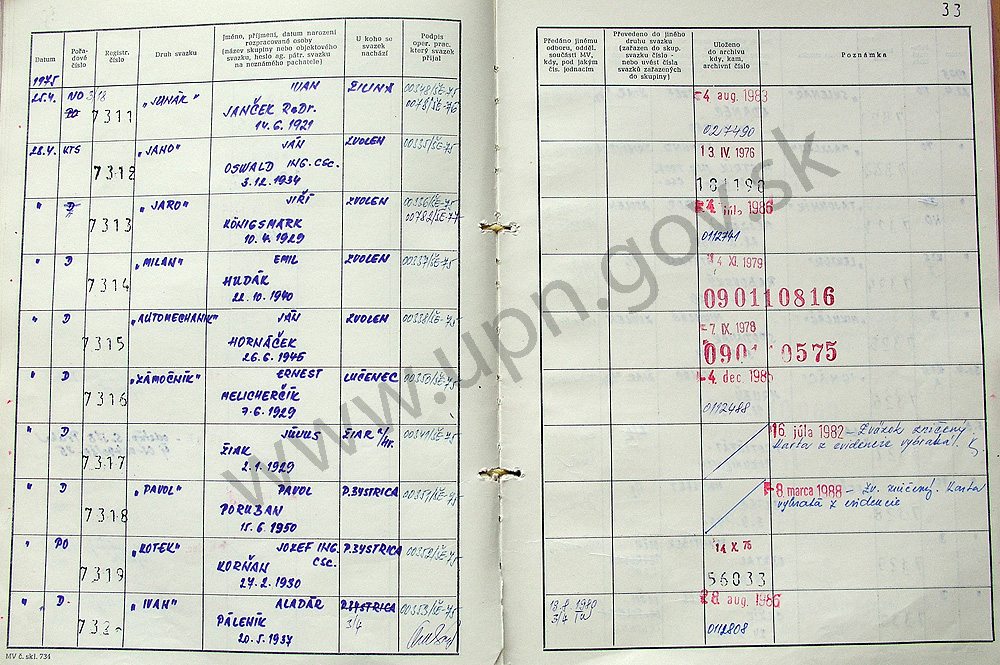 33
Datum
Pořa-
dové
číslo
Registr.
číslo
Druh svazku
Jméno, příjmení, datum narození
rozpracované osoby
(název skupiny nebo objektového
svazku, heslo ag. pátr. svazku
na neznámého pachatele)
U koho se
svazek
nachází
Podpis
oper. prac.
který svazek
přijal
Předáno jinému
odboru, odděl.
součásti MV,
kdy, pod jakým
čís. jednacím
Převedeno do jiného
druhu svazku
(zařazen do skup.
svazku číslo -
nebo uvést čísla
svazků zařazených
do skupiny)
Uloženo
do archivu
kdy, kam,
archivní číslo
Poznámka
1975
25.4. NO 7311 "JUNÁK" IVAN ŽILINA 00348/ŠE-75
JANČEK RoDr. 0078/ŠE-76
14.6.1921
4 aug. 1983
027490
28.4. KTS 7312 "JANO" JÁN ZVOLEN 00335/ŠE-75
OSWALD ING. CSC.
3.12.1934
13. IV. 1976
101190
" D 7313 "JARO" JIŘÍ ZVOLEN 00336/ŠE-75
KÖNIGSMARK 00782/ŠE-77
10.4.1929
júla 1986
0112741
" D 7314 "MILAN" EMIL ZVOLEN 00337/ŠE-75
HUDÁK
22.10.1940
4 XI. 1979
090110816
" D 7315 "AUTOMECHANIK" JÁN ZVOLEN 00338/ŠE-75
HORNÁČEK
26.6.1945
7. IX. 1978
0575
" D 7316 "ZÁMOČNÍK" ERNEST LUČENEC 00350/ŠE-75
MELICHERČÍK
7.6.1929
4. dec 198
0112488
" D 7317 JÚLIUS ŽIAR n/Hr. 00341/ŠE-75
ŽIAK
2.1.1929
16. júla 1982 - Zväzok zničený
karta z evidencie vybratá!
" D 7318 "PAVOL" PAVOL P.BYSTRICA 00351/ŠE-75
PORUBAN
15.6.1950
8. marca 1988 - Zv. zničený. Karta
vybratá z evidencie
" PO 7319 "KOTEK" JOZEF ING. P.BYSTRICA 00352/ŠE-75
CSC.
KORŇAN
27.2.1930
14 X. 75
56033
" D. 732 "IVAN" ALADÁR P.BYSTRICA 00353/ŠE-75
PÁLENÍK 3/4
20.5.1937
3/4
28 aug. 1986
0112808
MV č. skl. 734
www.upn.gov.sk